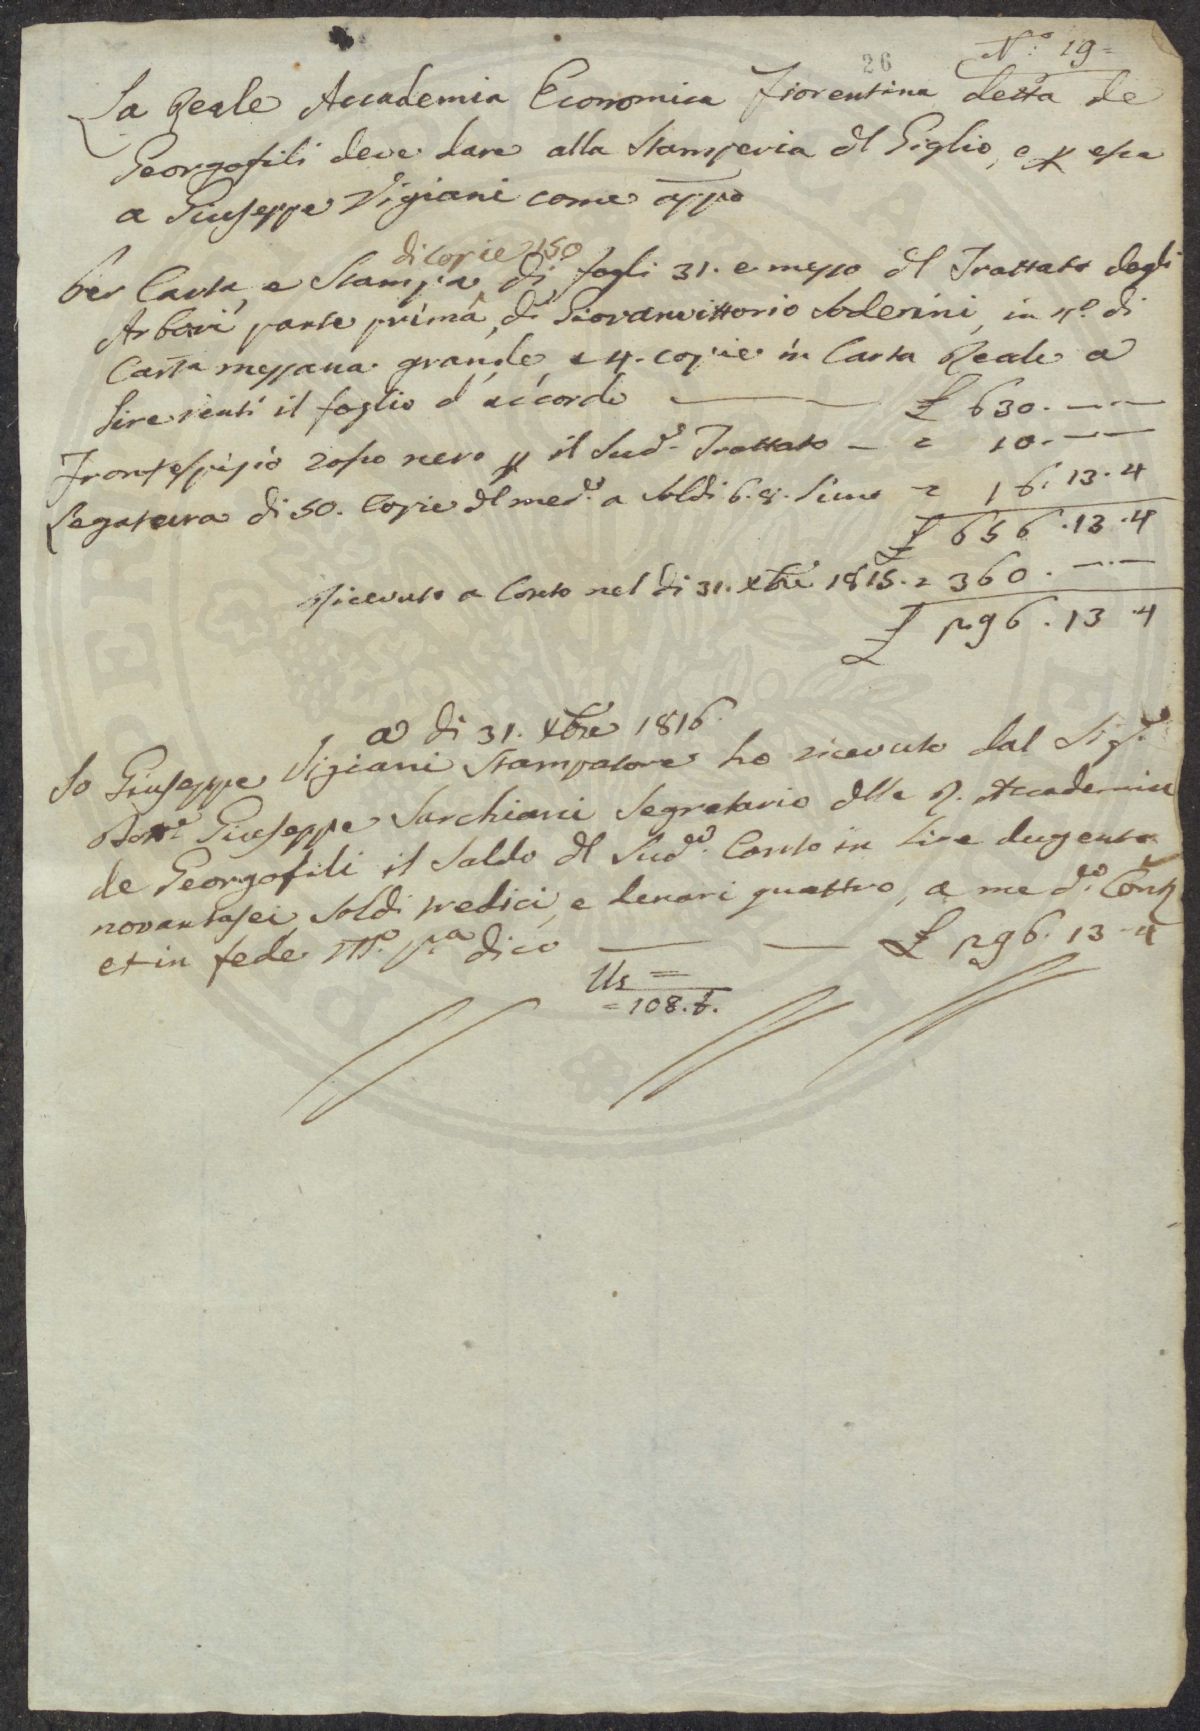 N.º 19=
26
La Reale Accademia Economica Fiorentina detta de
Georgofili deve dare alla Stamperia dl Giglio, e p essa
a Giuseppe Vigiani come appo
di copie 250
Per Carta, e Stampa di fogli 31. e mezzo dl Trattato degli
Arbori parte prima, di Giovanvittorio Soderini, in 4.º di
Carta mezzana grande, e 4. copie in Carta Reale a
Lire venti il foglio d'accordo — £ 630. — —
Frontespizio rosso nero p il Sud.º Trattato — = 10. — —
Legatura di 50. Copie dl med.º a Soldi 6. 8. l'una = 16. 13. 4
£ 656. 13. 4
Ricevuto a Conto nel di 31. Xbre 1815. = 360. — —
£ 296. 13. 4
a di 31. Xbre 1816.
Io Giuseppe Vigiani Stampatore ho ricevuto dal Sig.e
Dott.e Giuseppe Sarchiani Segretario dlla R. Accademia
de Georgofili il Saldo dl Sud.º Conto in Lire dugento
novantasei, Soldi tredici, e denari quattro, a me d.º Conti
et in fede M.º p.a dico — — £ 296. 13. 4
= 108. 8.